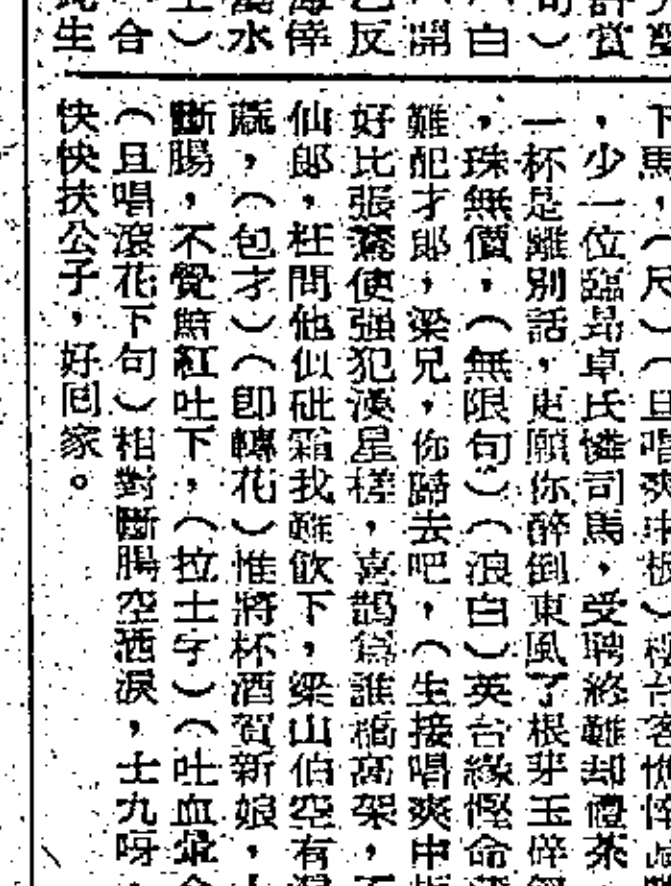 賞
句）
白
開
反
水
士）
合
生
下馬，（尺）（旦唱爽中板）
，少一位臨昻卓氏憐司馬，受聘終難却禮茶
一杯是離別話，更願你醉倒東風了根芽玉碎
，珠無價，（無限句）（浪白）英台緣慳命
難配才郎，梁兄，你歸去吧，（生接唱爽中板
好比張騫使强犯漢星槎，喜鵲爲誰橋高架，
仙郎，枉問他似砒霜我難飲下，梁山伯空有
，（包才）（卽轉花）惟將杯酒賀新娘，
斷腸，不覺暗紅吐下，（拉士字）（吐血
（旦唱滾花下句）相對斷腸空洒淚，士九呀，
快快扶公子，好囘家。